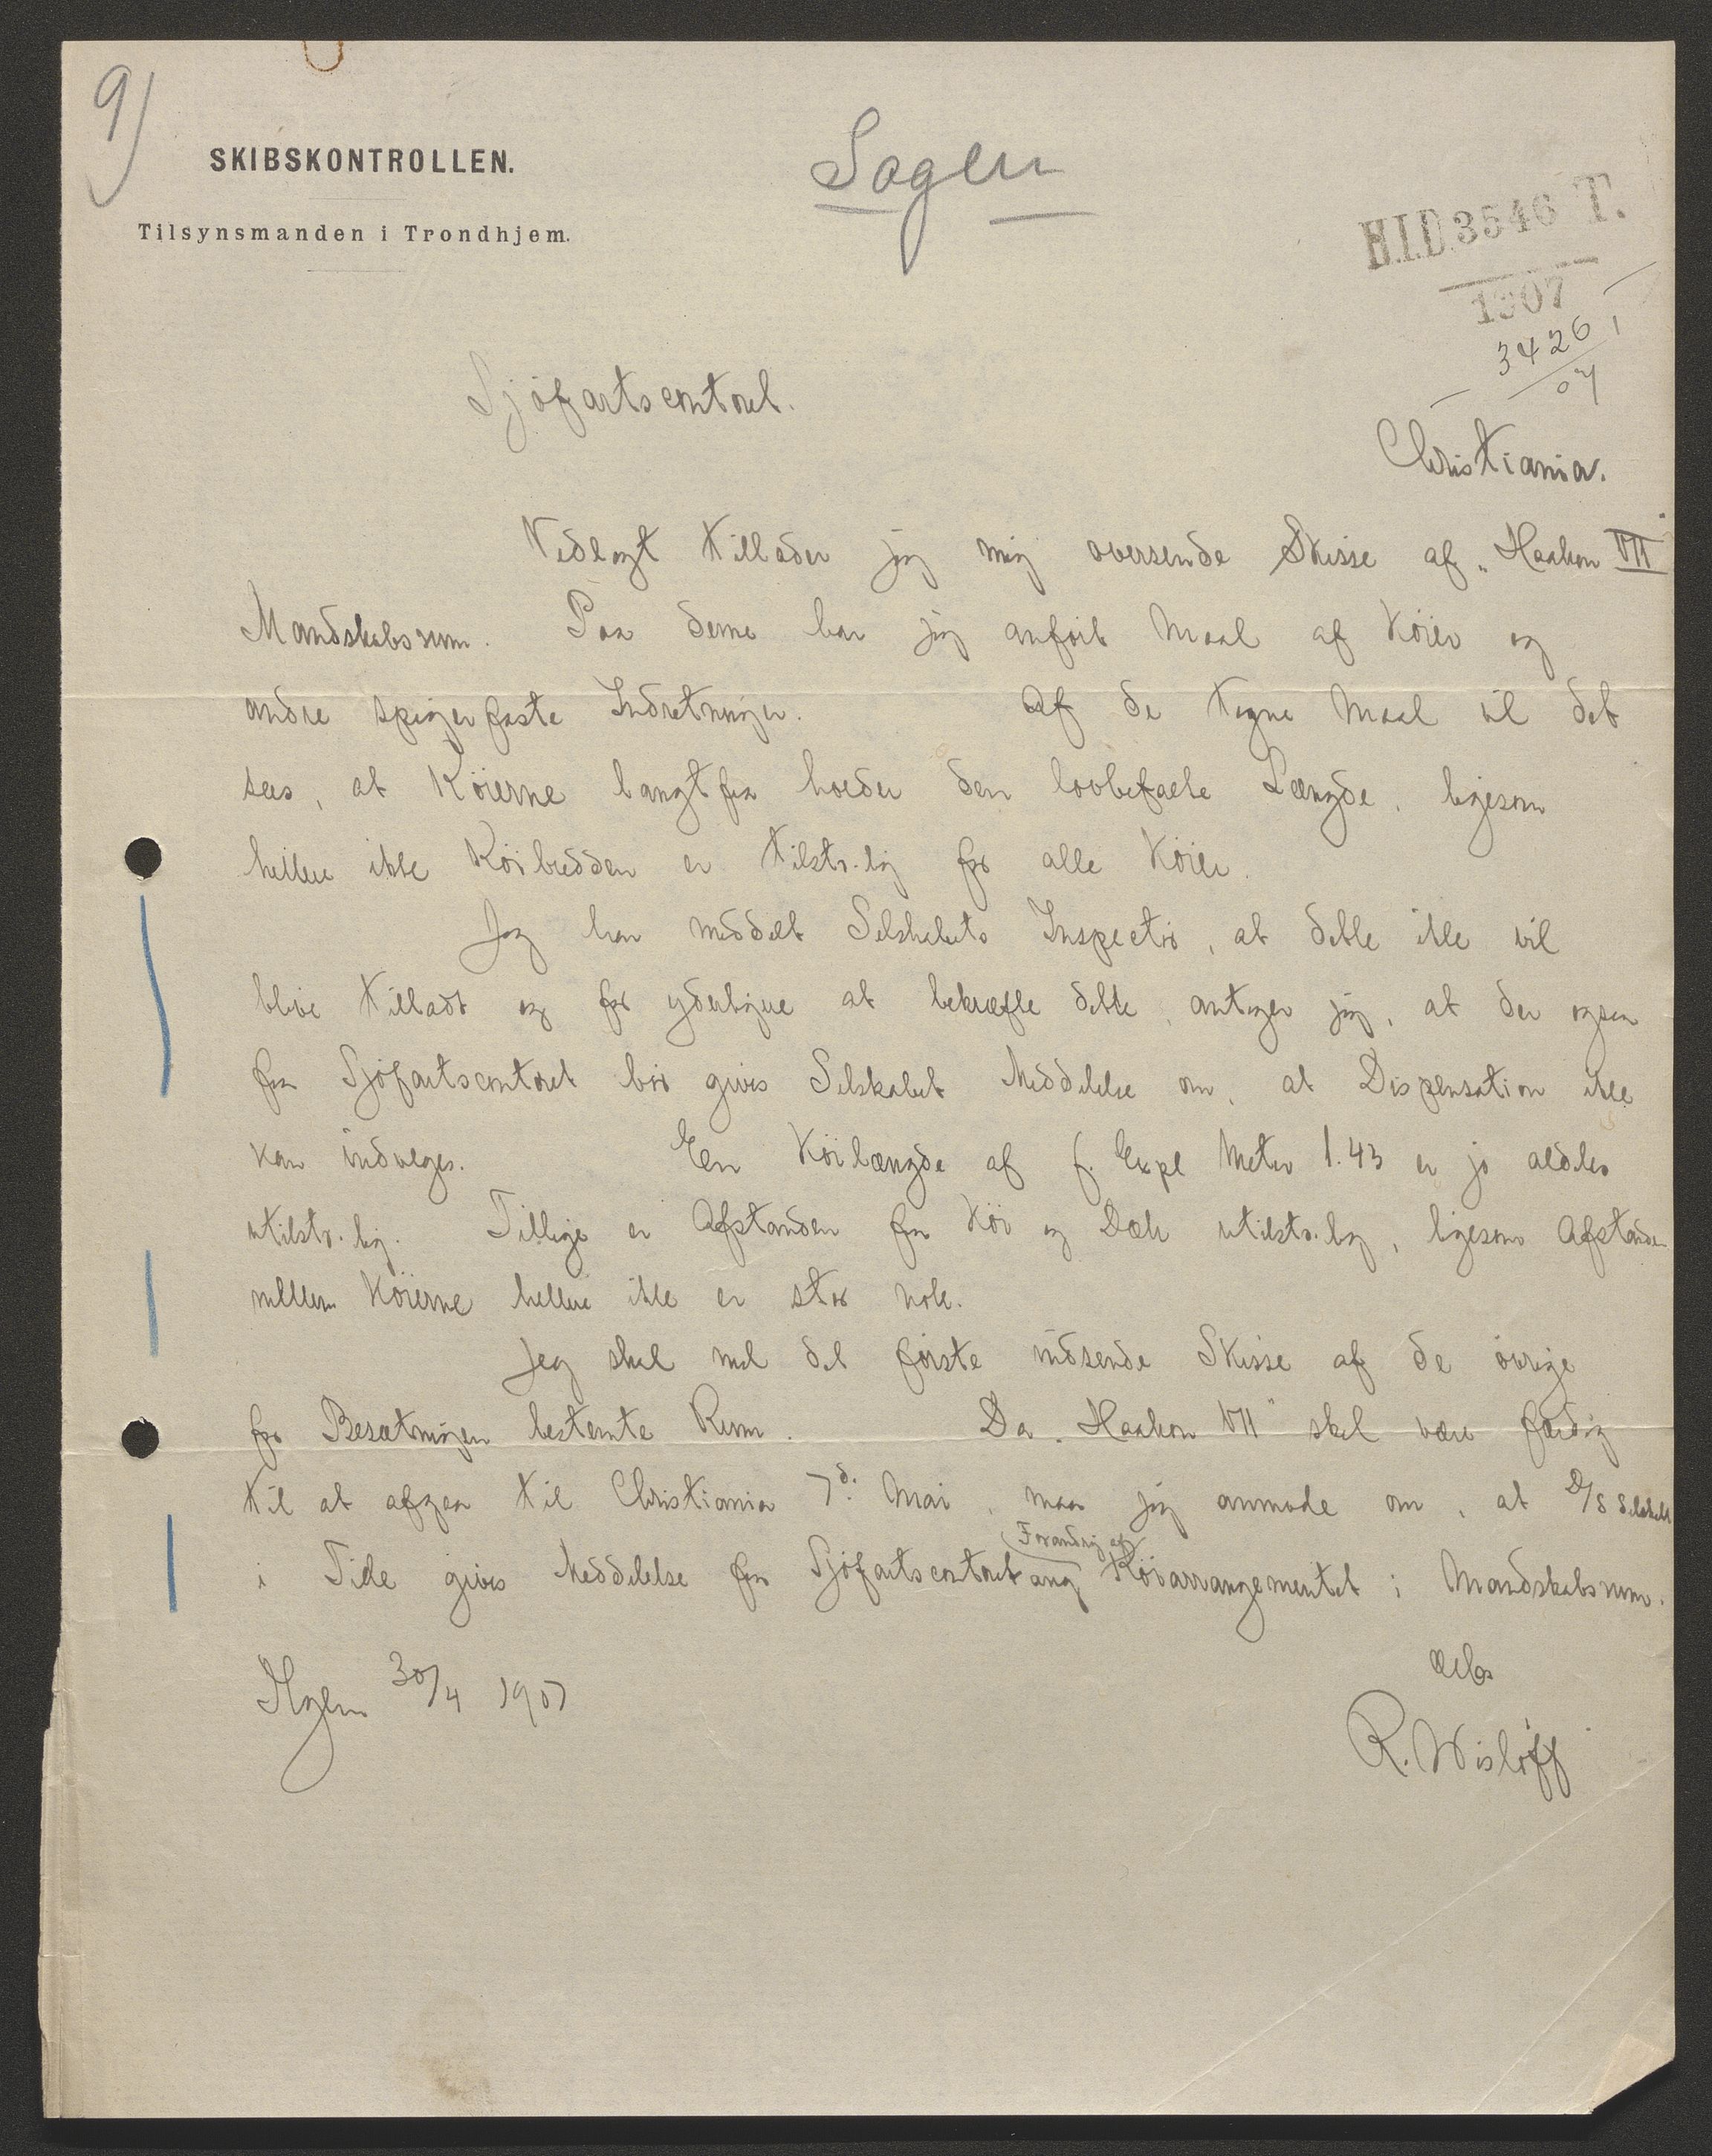 9)
SKIBSKONTROLLEN.
Tilsynsmanden i Trondhjem.
Sagen
H.I.D. 3546 T.
1907
3426
07
Sjöfartscontoret.
Christiania.
Vedlagt tillader jeg mig oversende Skisse af „Haakon VII"
Mandskabsrum. Paa denne har jeg anført Maal af Köier og
andre spigerfaste Indretninger. Af de tagne Maal vil det
sees, at Köierne langtfra holder den lovbefalte Længde, ligesom
heller ikke Köibredden er tilstr.lig for alle Köier.
Jeg har meddelt Selskabets Inspectör, at dette ikke vil
blive tilladt og for yderligere at bekræfte dette, antager jeg, at der ogsaa
fra Sjöfartscontoret bör gives Selskabet Meddelelse om, at Dispensation ikke
kan indvilges. En Köilængde af f. Expl Meter 1.43 er jo aldeles
utilstr.lig. Tillige er Afstanden fra Köi og Dæk utilstr.lig, ligesom Afstanden
mellem Köierne heller ikke er stor nok.
Jeg skal med det förste indsende Skisse af de övrige
for Besætningen bestemte Rum. Da „Haakon VII" skal være færdig
til at afgaa til Christiania 7d. Mai, maa jeg anmode om, at D/S Selskab
i Tide gives Meddelelse fra Sjöfartscontoret ang Forandring af Köiarrangementet i Mandskabsrum.
Thjem 30/4 1907
ærb
R. Wislöff